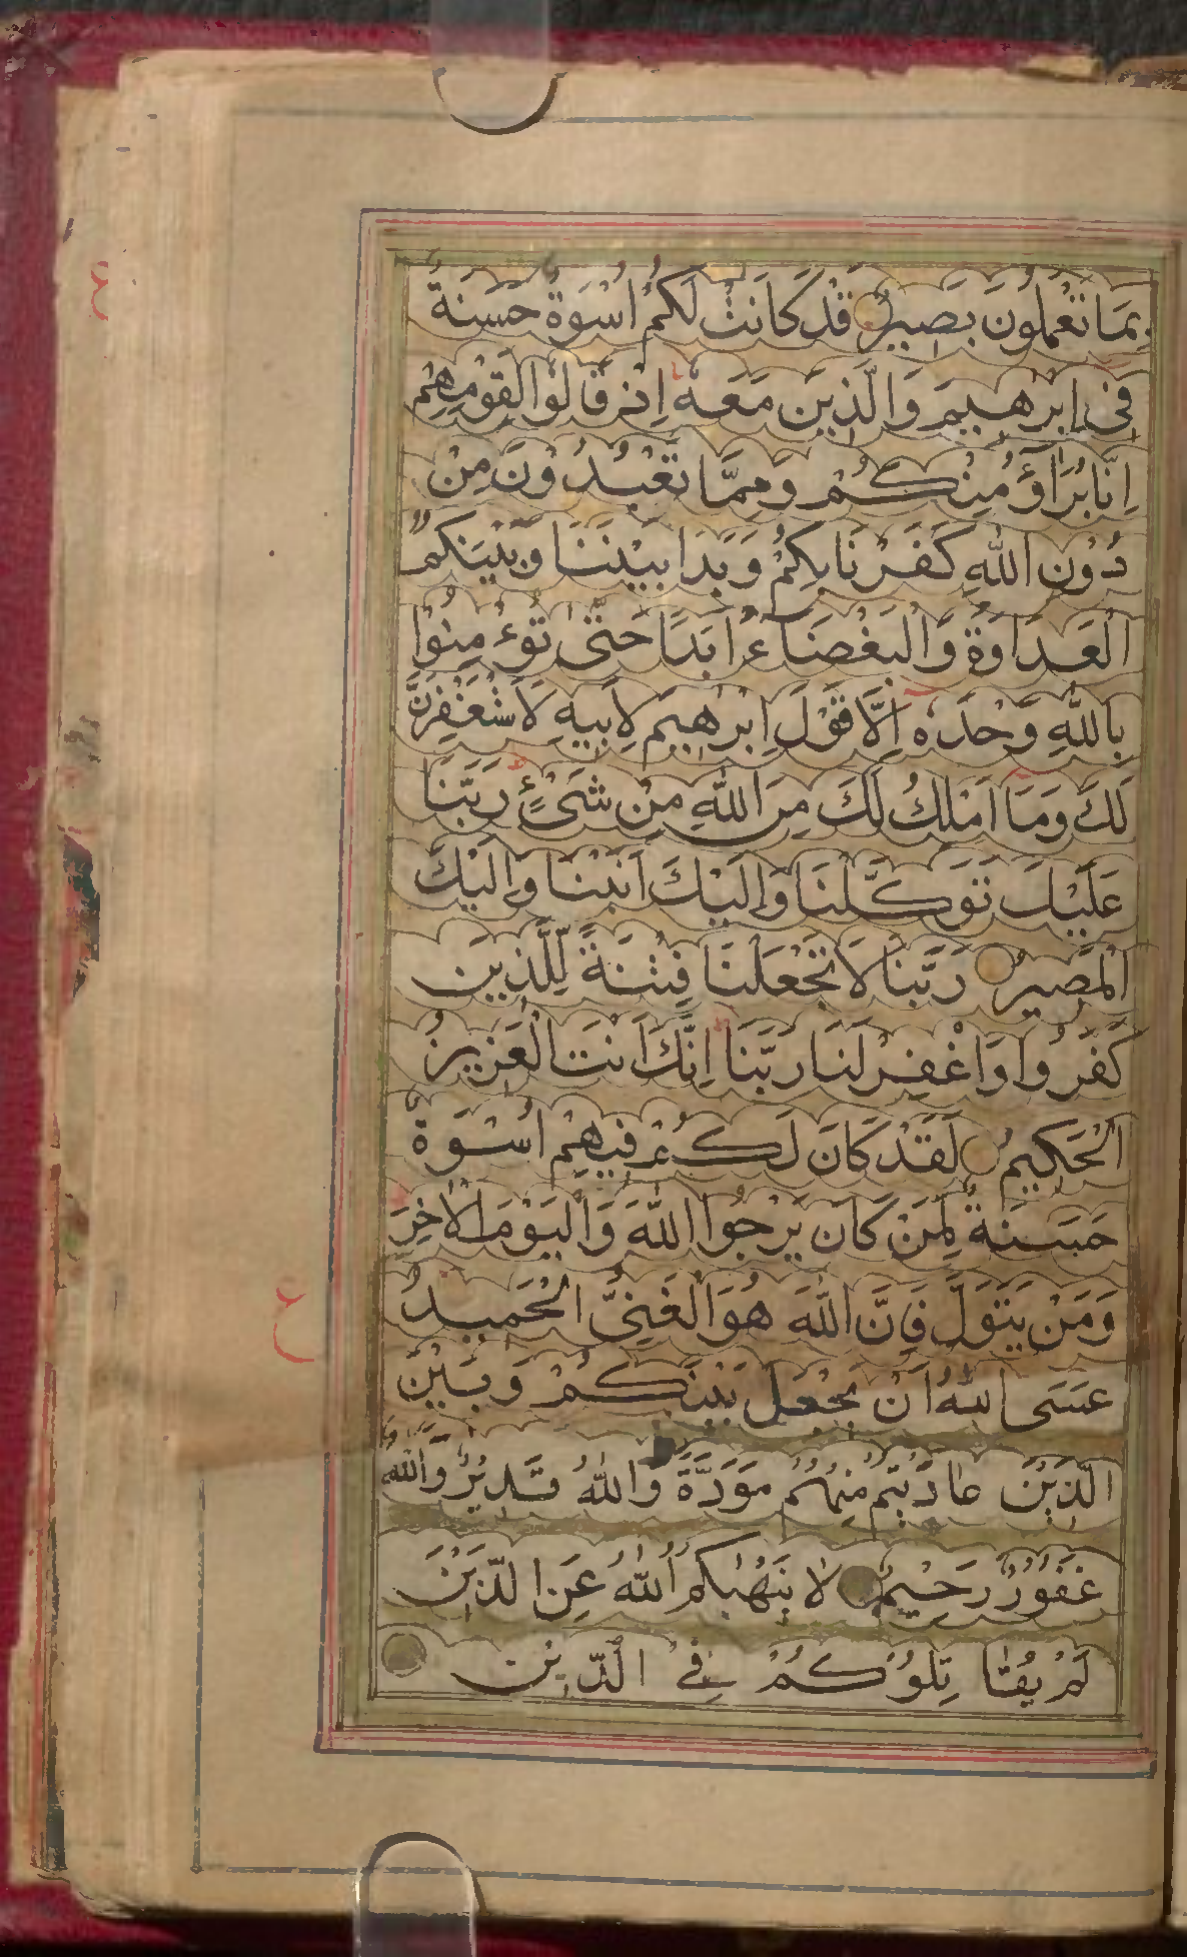 بِمَا تَعْمَلُونَ بَصِيرٌ قَدْ كَانَتْ لَكُمْ اُسْوَةٌ حَسَنَةٌ
فِى اِبْرٰهِيمَ وَالَّذِينَ مَعَهٗ اِذْ قَالُوا لِقَوْمِهِمْ
اِنَّا بُرَآؤُ مِنْكُمْ وَمِمَّا تَعْبُدُونَ مِنْ
دُوْنِ اللّٰهِ كَفَرْنَا بِكُمْ وَبَدَا بَيْنَنَا وَبَيْنَكُمُ
الْعَدَاوَةُ وَالْبَغْضَاءُ اَبَدًا حَتّٰى تُؤْمِنُوْا
بِاللّٰهِ وَحْدَهٗ اِلَّا قَوْلَ اِبْرٰهِيمَ لِاَبِيهِ لَاَسْتَغْفِرَنَّ
لَكَ وَمَا اَمْلِكُ لَكَ مِنَ اللّٰهِ مِنْ شَىْءٍ رَبَّنَا
عَلَيْكَ تَوَكَّلْنَا وَاِلَيْكَ اَنَبْنَا وَاِلَيْكَ
الْمَصِيرُ رَبَّنَا لَا تَجْعَلْنَا فِتْنَةً لِّلَّذِينَ
كَفَرُوا وَاغْفِرْ لَنَا رَبَّنَا اِنَّكَ اَنْتَ الْعَزِيزُ
الْحَكِيمُ لَقَدْ كَانَ لَكُمْ فِيهِمْ اُسْوَةٌ
حَسَنَةٌ لِمَنْ كَانَ يَرْجُوا اللّٰهَ وَالْيَوْمَ الْاٰخِرَ
وَمَنْ يَتَوَلَّ فَاِنَّ اللّٰهَ هُوَ الْغَنِىُّ الْحَمِيدُ
عَسَى اللّٰهُ اَنْ يَجْعَلَ بَيْنَكُمْ وَبَيْنَ
الَّذِيْنَ عَادَيْتُمْ مِنْهُمْ مَوَدَّةً وَاللّٰهُ قَدِيْرٌ وَاللّٰهُ
غَفُوْرٌ رَحِيْمٌ لَا يَنْهٰيكُمُ اللّٰهُ عَنِ الَّذِيْنَ
لَمْ يُقَاتِلُوْكُمْ فِى الدِّيْنِ
ع
ع